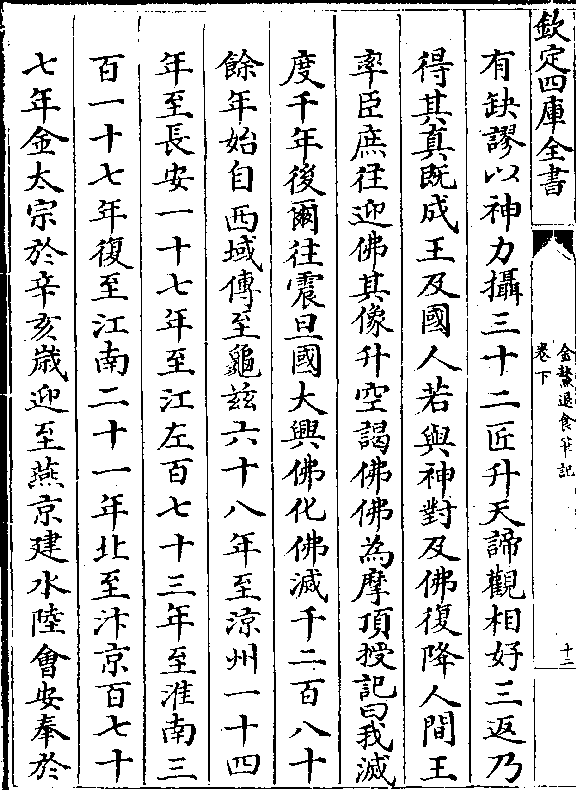 欽定四庫全書
金鰲退食筆記
卷下
十二
有缺謬以神力攝三十二匠升天諦觀相好三返乃
得其真既成王及國人若與神對及佛復降人間王
率臣庶往迎佛其像升空謁佛佛為摩頂授記曰我滅
度千年後爾往震旦國大興佛化佛滅千二百八十
餘年始自西域傳至龜茲六十八年至涼州一十四
年至長安一十七年至江左百七十三年至淮南三
百一十七年復至江南二十一年北至汴京百七十
七年金太宗於辛亥歲迎至燕京建水陸會安奉於